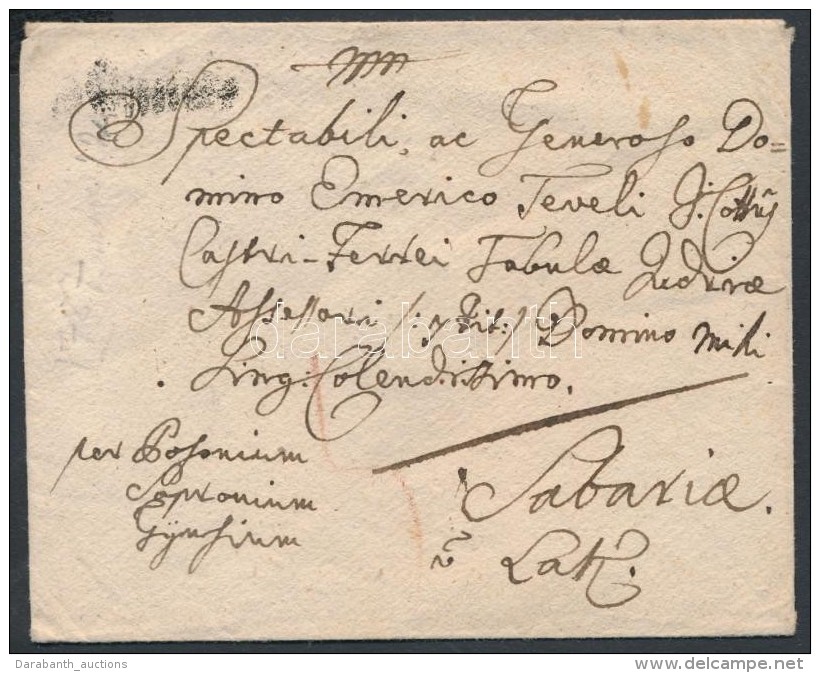 Spectabili, ac Generoso Do=
mino Emerico Teveli I: Cottũs
Castri-Ferrei Tabulæ Judriæ
Assessori /: p Tit: / Domino mihi
Sing: Colendissimo.
per Posonium
Sopronium
Gÿnsium
Sabariæ.
darabanth
Darabanth_auctions
delcampe.net